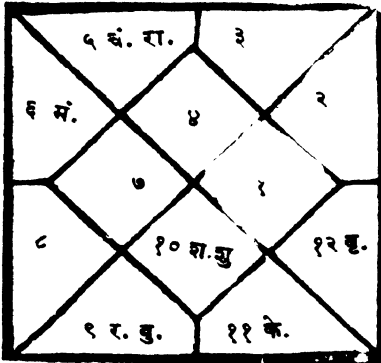 ५ चं. रा.
३
६ मं.
४
२
७
१
८
१० श.शु
१२ बृ.
९ र. बु.
११ के.